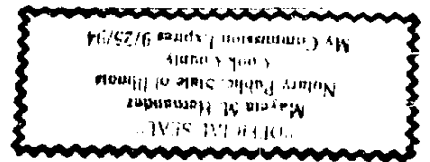 "OFFICIAL SEAL"
M. Hernandez
Notary Public, State of Illinois
Cook County
My Commission Expires 9/25/94